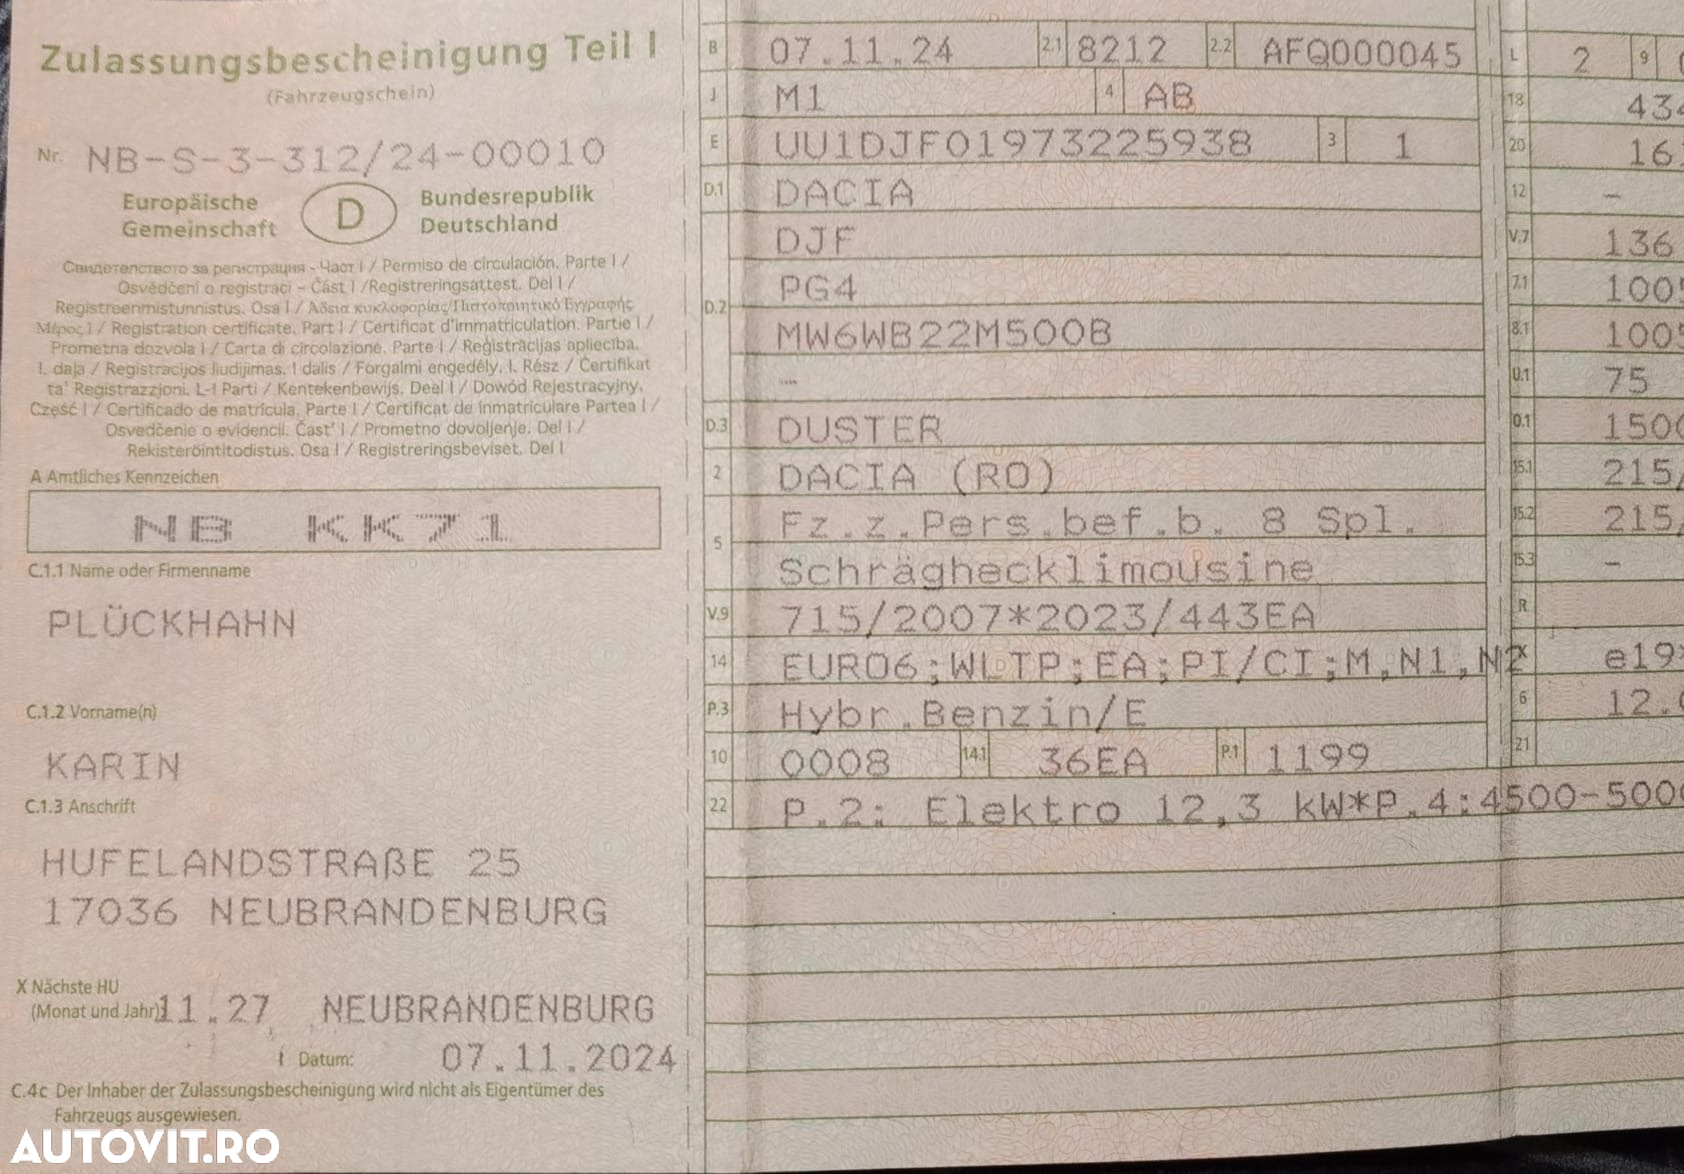 Zulassungsbescheinigung Teil I
(Fahrzeugschein)
Nr. NB-S-3-312/24-00010
Europäische Gemeinschaft
D
Bundesrepublik Deutschland
Свидетелството за регистрация - Част I / Permiso de circulación. Parte I /
Osvědčení o registraci - Část I /Registreringsattest. Del I /
Registreerimistunnistus. Osa I / Άδεια κυκλοφορίας/Πιστοποιητικό Εγγραφής
Μέρος I / Registration certificate. Part I / Certificat d'immatriculation. Partie I /
Prometna dozvola I / Carta di circolazione. Parte I / Reģistrācijas apliecība.
I. daļa / Registracijos liudijimas. I dalis / Forgalmi engedély. I. Rész / Ċertifikat
ta' Reġistrazzjoni. L-I Parti / Kentekenbewijs. Deel I / Dowód Rejestracyjny.
Część I / Certificado de matrícula. Parte I / Certificat de înmatriculare Partea I /
Osvedčenie o evidencii. Časť I / Prometno dovoljenje. Del I /
Rekisteröintitodistus. Osa I / Registreringsbeviset. Del I
A Amtliches Kennzeichen
NB KK71
C.1.1 Name oder Firmenname
PLÜCKHAHN
C.1.2 Vorname(n)
KARIN
C.1.3 Anschrift
HUFELANDSTRAßE 25
17036 NEUBRANDENBURG
X Nächste HU
(Monat und Jahr) 11.27 NEUBRANDENBURG
I Datum: 07.11.2024
C.4c Der Inhaber der Zulassungsbescheinigung wird nicht als Eigentümer des
Fahrzeugs ausgewiesen.
B 07.11.24 2.1 8212 2.2 AFQ000045
J M1 4 AB
E UU1DJF01973225938 3 1
D.1 DACIA
DJF
D.2 PG4
MW6WB22M500B
–
D.3 DUSTER
2 DACIA (RO)
5 Fz.z.Pers.bef.b. 8 Spl.
Schräghecklimousine
V.9 715/2007*2023/443EA
14 EURO6;WLTP;EA;PI/CI;M,N1,N2
P.3 Hybr.Benzin/E
10 0008 14.1 36EA P.1 1199
22 P.2: Elektro 12,3 kW*P.4:4500-500
L 2 9
18 434
20 16
12 –
V.7 136
7.1 100
8.1 100
U.1 75
O.1 150
15.1 215/
15.2 215/
15.3 –
R
K e19*
6 12.
21
AUTOVIT.RO